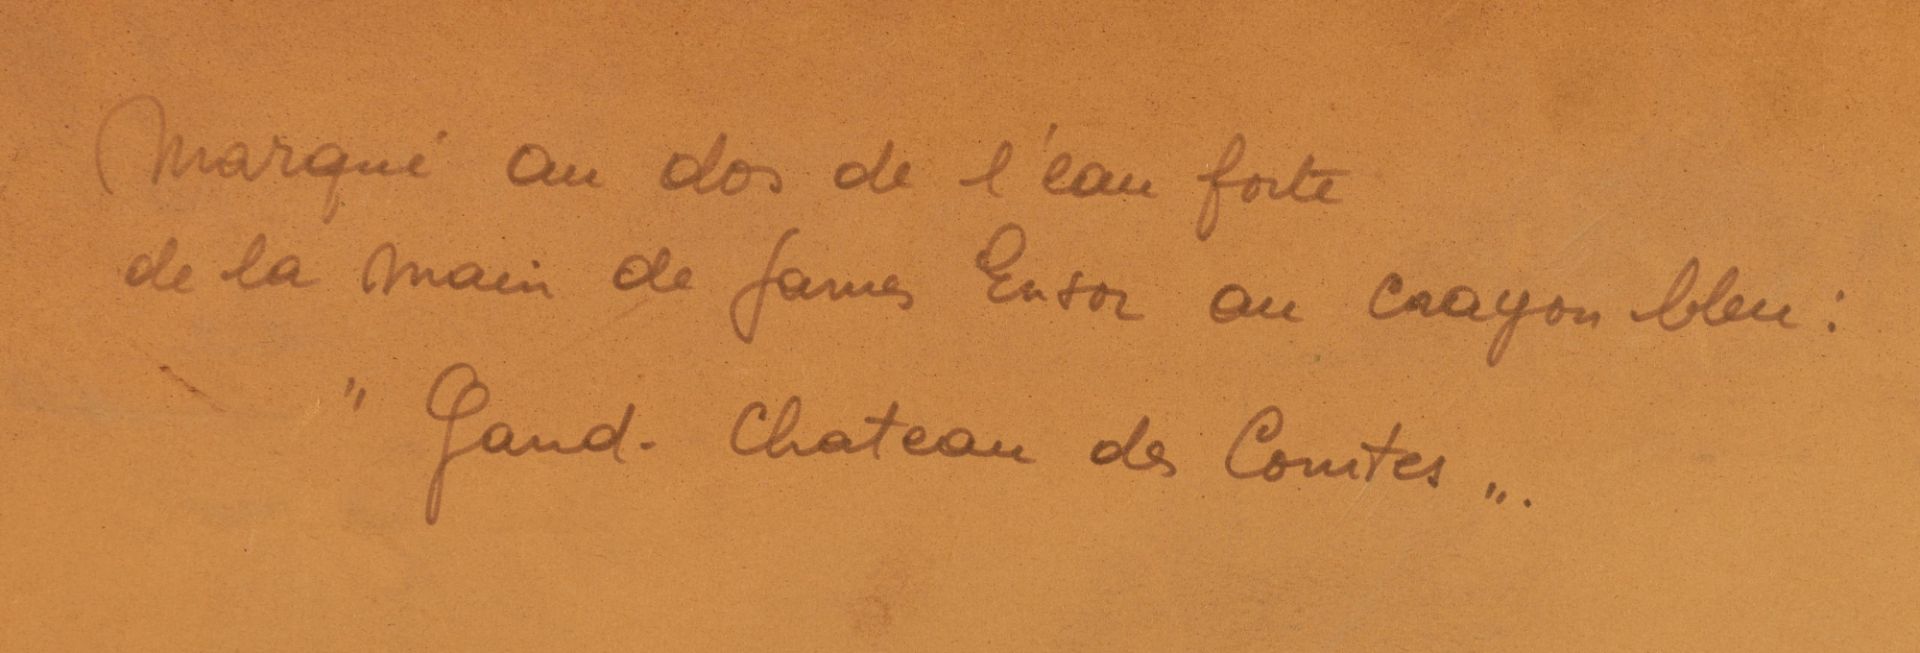 Marqué au dos de l'eau forte
de la main de James Ensor au crayon bleu :
" Gand - Chateau des Comtes ".